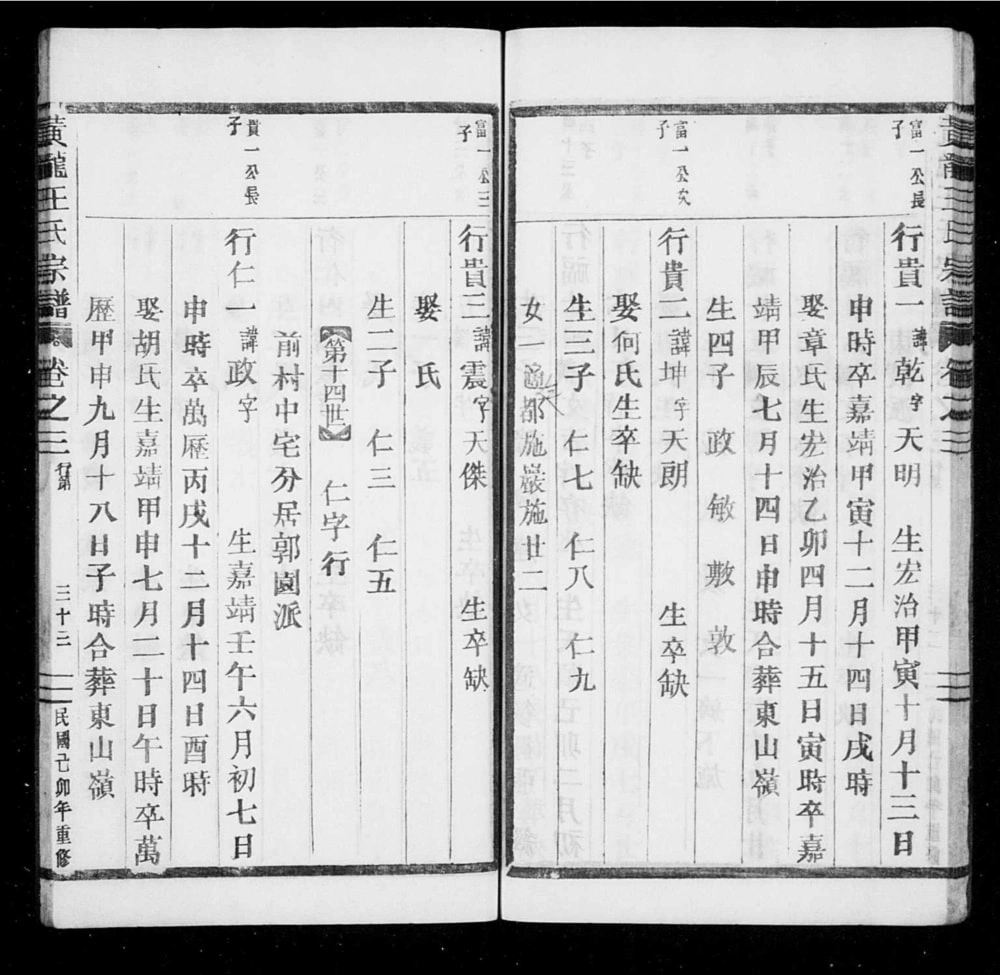 富一公長子
行貴一諱乾字天明 生宏治甲寅十月十三日
申時卒嘉靖甲寅十二月十四日戌時
娶章氏生宏治乙卯四月十五日寅時卒嘉
靖甲辰七月十四日申時合葬東山嶺
生四子 政 敏 敷 敦
富一公次子
行貴二諱坤字天朗 生卒缺
娶何氏生卒缺
生三子 仁七 仁八 仁九
女一適都施巖施廿二
富一公三子
行貴三諱震字天傑 生卒缺
娶 氏
生二子 仁三 仁五
【第十四世】 仁字行
前村中宅分居郭園派
貴一公長子
行仁一諱政字 生嘉靖壬午六月初七日
申時卒萬歷丙戌十二月十四日酉時
娶胡氏生嘉靖甲申七月二十日午時卒萬
歷甲申九月十八日子時合葬東山嶺
黃龍王氏宗譜 卷之三 行第 三十三 民國己卯年重修